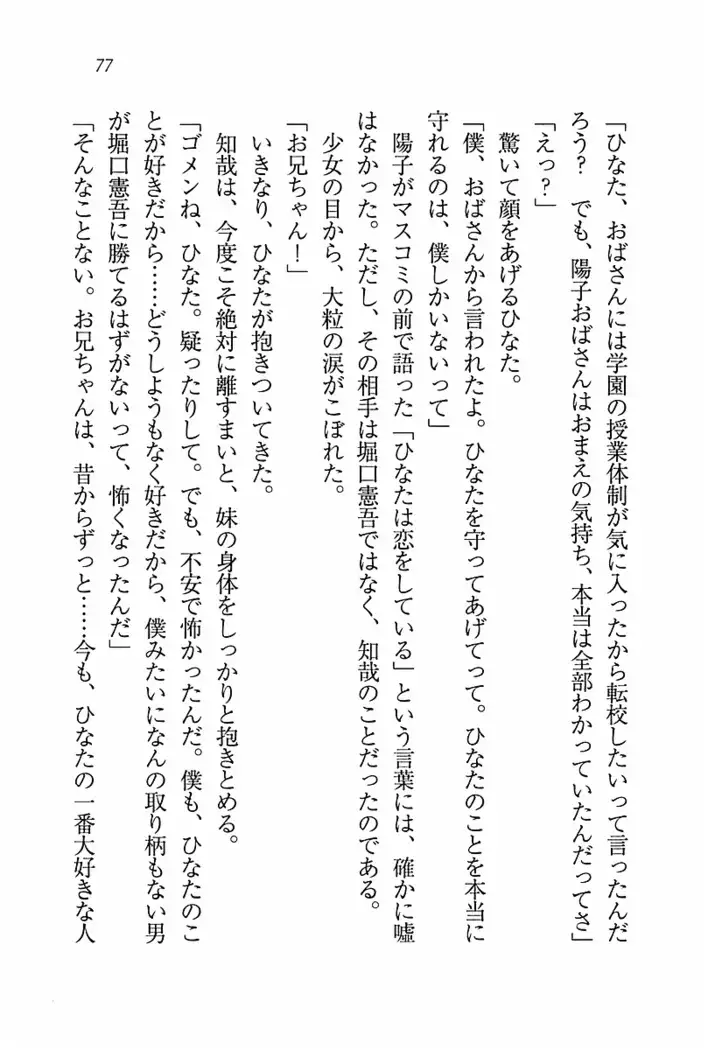 77
「ひなた、おばさんには学園の授業体制が気に入ったから転校したいって言ったんだ
ろう？　でも、陽子おばさんはおまえの気持ち、本当は全部わかっていたんだってさ」
「えっ？」
　驚いて顔をあげるひなた。
「僕、おばさんから言われたよ。ひなたを守ってあげてって。ひなたのことを本当に
守れるのは、僕しかいないって」
　陽子がマスコミの前で語った「ひなたは恋をしている」という言葉には、確かに嘘
はなかった。ただし、その相手は堀口憲吾ではなく、知哉のことだったのである。
　少女の目から、大粒の涙がこぼれた。
「お兄ちゃん！」
　いきなり、ひなたが抱きついてきた。
　知哉は、今度こそ絶対に離すまいと、妹の身体をしっかりと抱きとめる。
「ゴメンね、ひなた。疑ったりして。でも、不安で怖かったんだ。僕も、ひなたのこ
とが好きだから……どうしようもなく好きだから、僕みたいになんの取り柄もない男
が堀口憲吾に勝てるはずがないって、怖くなったんだ」
「そんなことない。お兄ちゃんは、昔からずっと……今も、ひなたの一番大好きな人